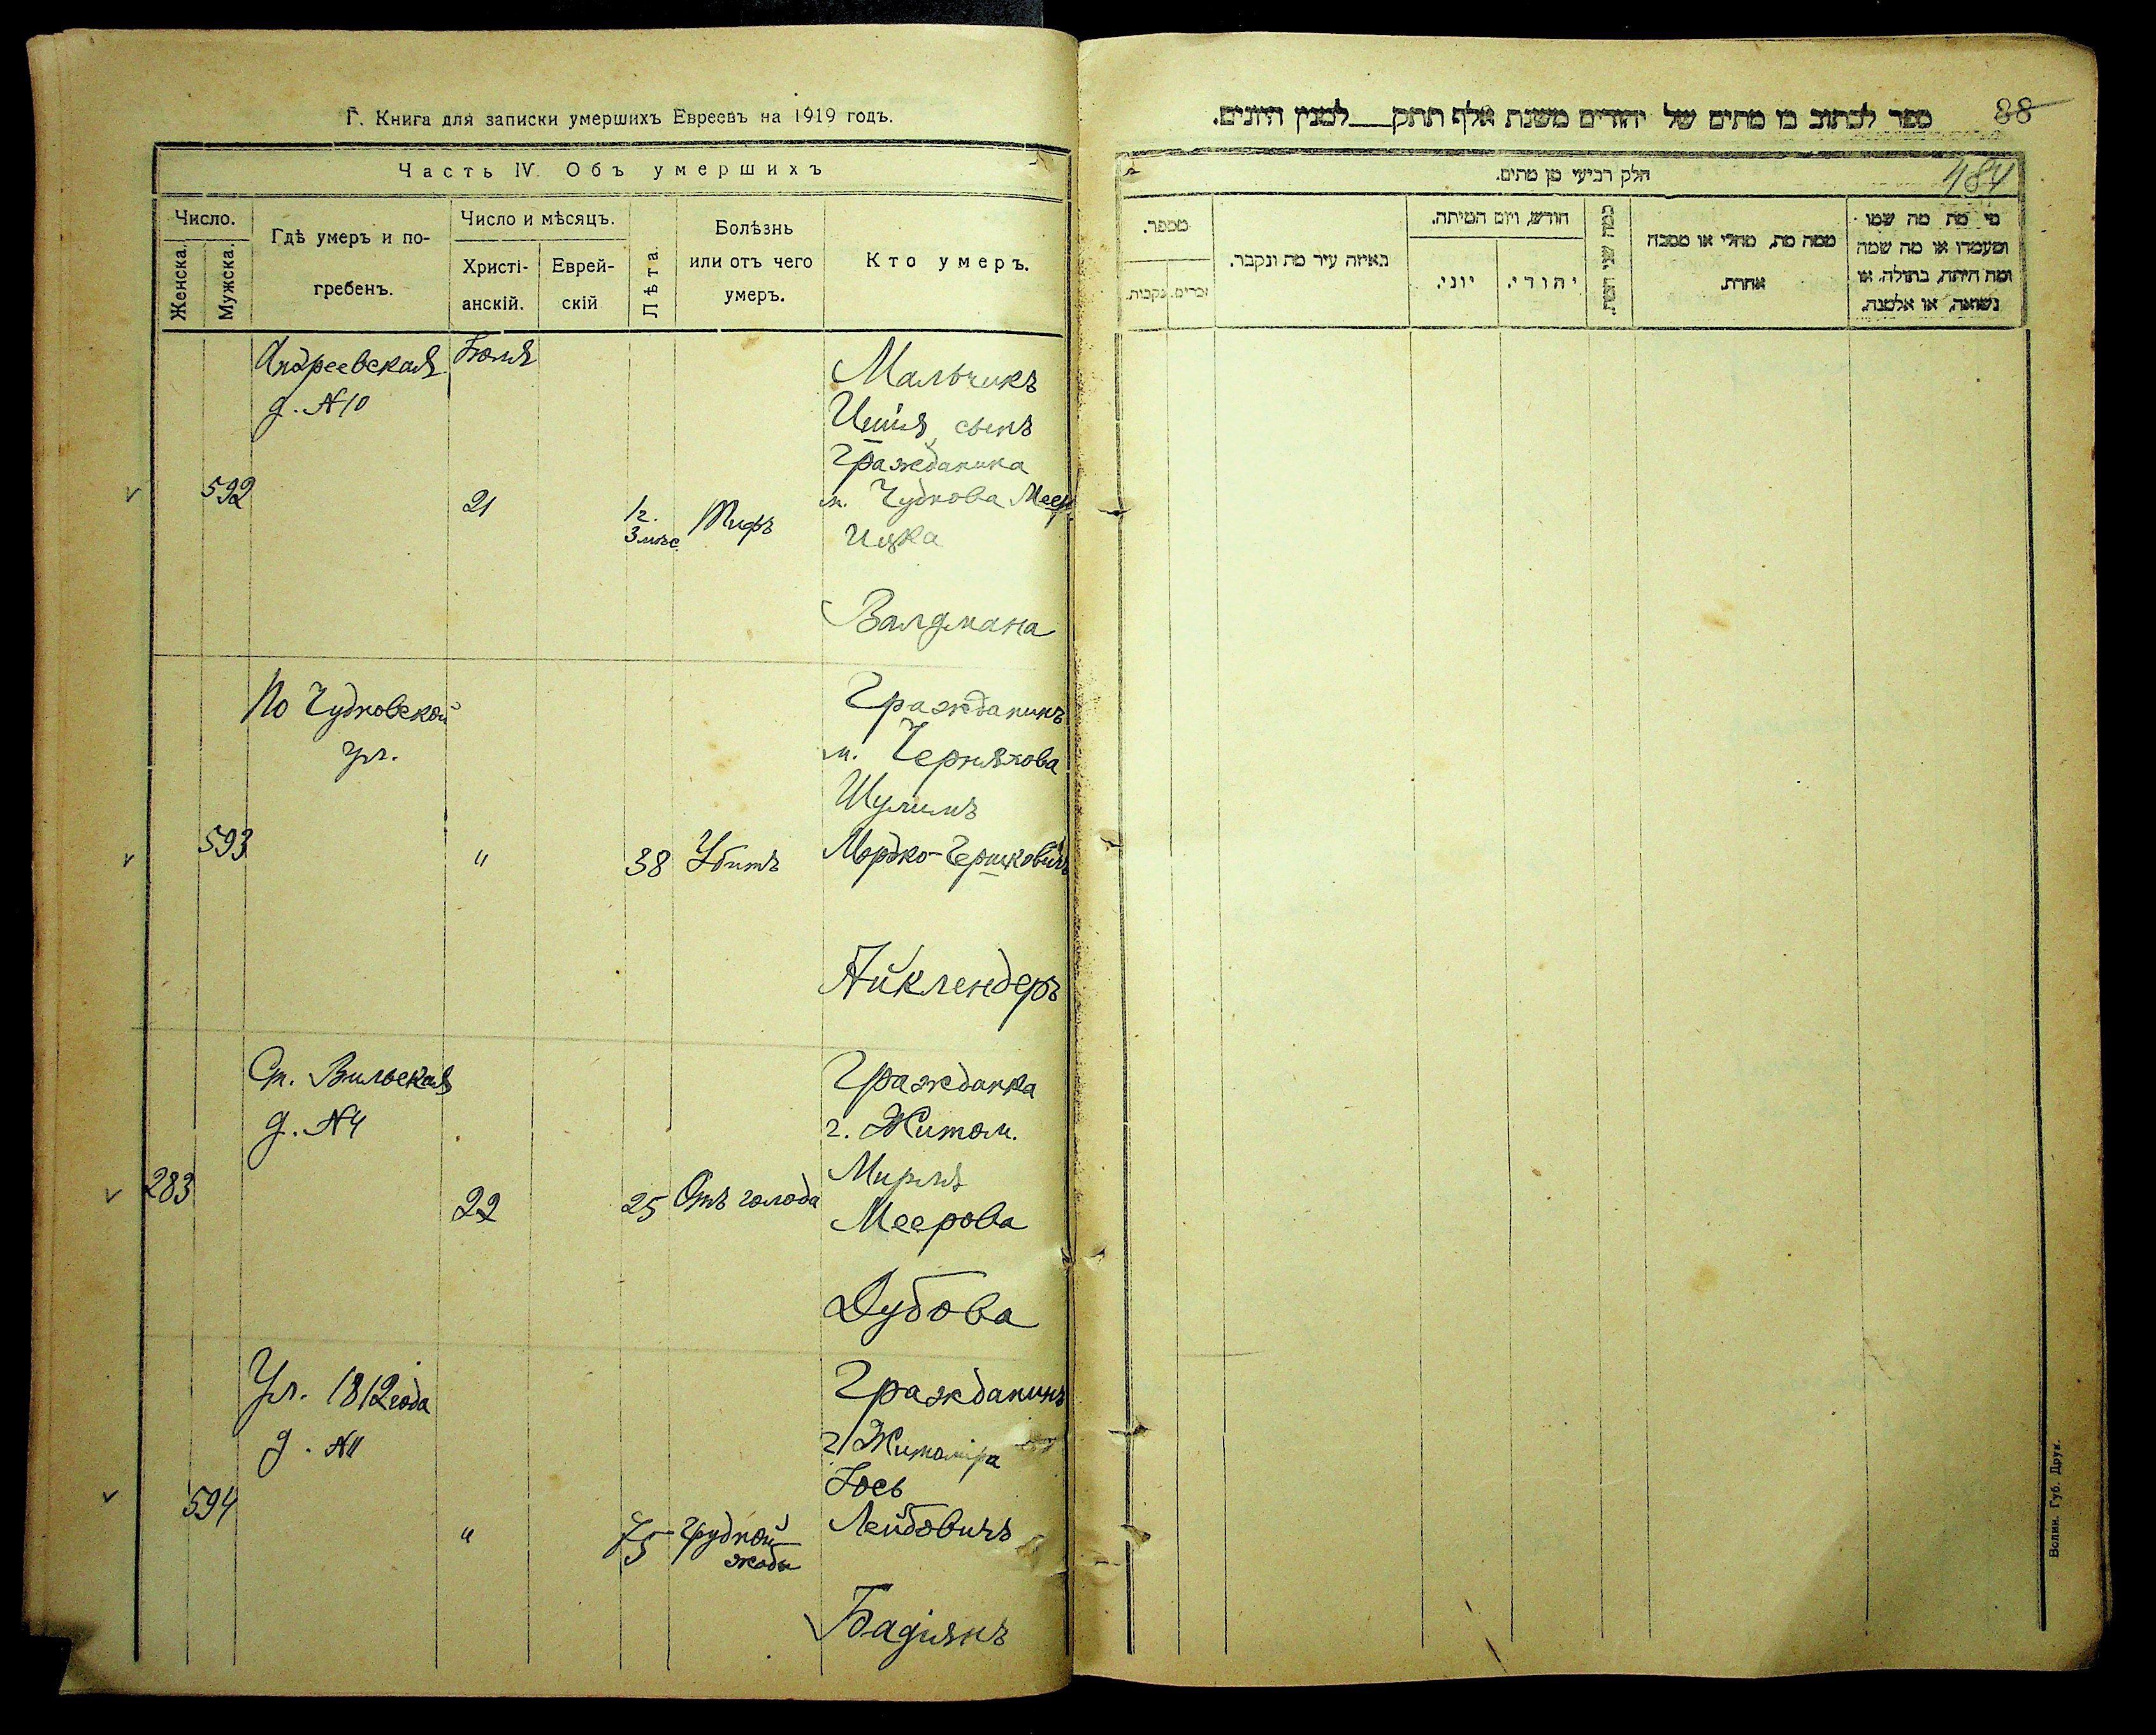 Г. Книга для записки умершихъ Евреевъ на 1919 годъ.
Часть IV. Объ умершихъ
Число.
Женска.
Мужска.
Гдѣ умеръ и по-
гребенъ.
Число и мѣсяцъ.
Христі-
анскій.
Еврей-
скій
Лѣта.
Болѣзнь
или отъ чего
умеръ.
Кто умеръ.
592
Андреевская
д. №10
Іюля
21
1/2.
3 мѣс
Тифъ
Мальчикъ
сынъ
Гражданина
м. Чуднова Меер
Ицка
Валдмана
593
По Чудновской
ул.
"
38
Убитъ
Гражданинъ
м. Черняхова
Шулимъ
Мордко-Гершковичъ
Айклендеръ
283
Ст. Вильская
д. №4
22
25
Отъ голода
Гражданка
г. Житом.
Мирля
Меерова
Дубова
594
Ул. 1812 года
д. №11
"
75
Грудной
жабы
Гражданинъ
г. Житоміра
Іось
Лейбовичъ
Бадіянъ
ספר לכתוב בו מתים של יהודים משנת אלף תתק___למנין היונים.
38
484
חלק רביעי מן מתים.
מספר.
זכרים.
נקבות.
באיזה עיר מת ונקבר.
חודש, ויום המיתה.
יוני.
יהודי.
כמה שני המת.
ממה מת, מחלי או מסבה
אחרת.
מי מת מה שמו
ומעמדו או מה שמה
ומה היתה, בתולה. או
נשואה, או אלמנה.
Волин. Губ. Друк.